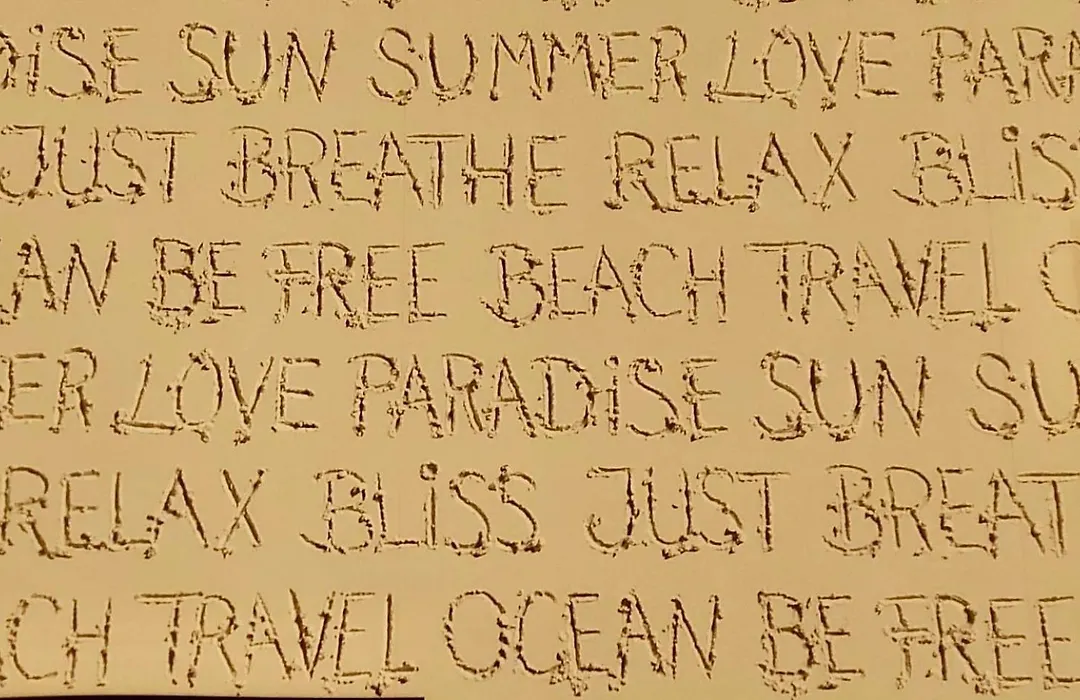 DiSE SUN SUMMER LOVE PARA
JUST BREATHE RELAX BLiS
AN BE FREE BEACH TRAVEL O
ER LOVE PARADiSE SUN SU
RELAX BLiSS JUST BREAT
CH TRAVEL OCEAN BE FREE